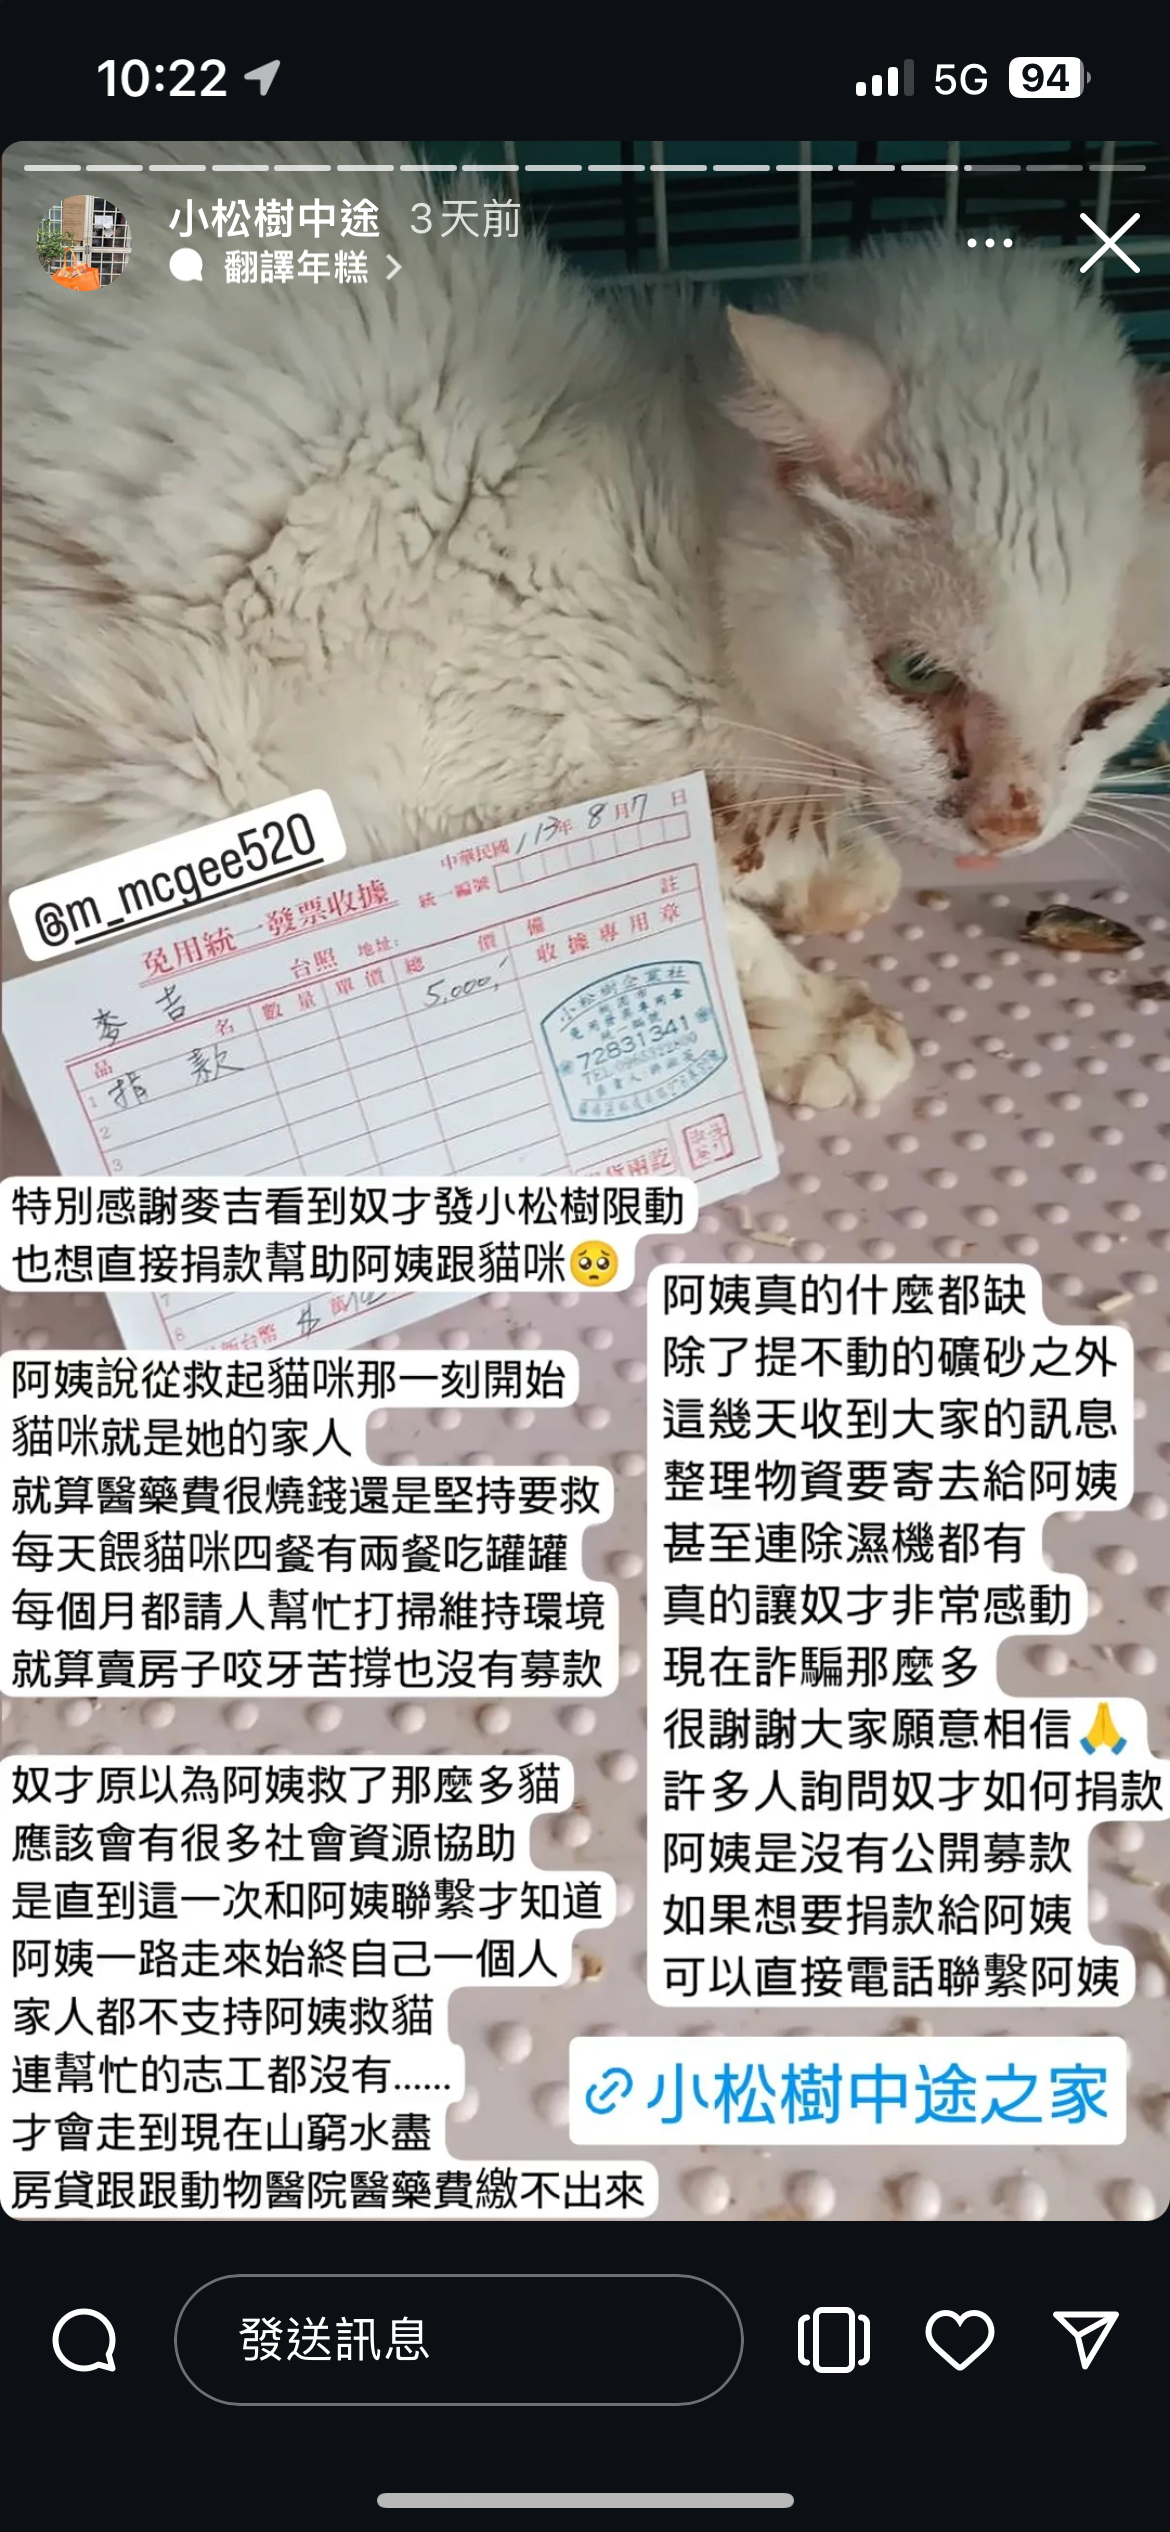 10:22
5G 94
小松樹中途 3天前
翻譯年糕
@m_mcgee520
中華民國113年8月7日
統一編號
免用統一發票收據
麥吉 台照 地址:
品名 數量 單價 總價 備註
1 捐款 5,000
收據專用章
小松樹企業社
統一編號
72831341
2
3
特別感謝麥吉看到奴才發小松樹限動
也想直接捐款幫助阿姨跟貓咪🥺
阿姨說從救起貓咪那一刻開始
貓咪就是她的家人
就算醫藥費很燒錢還是堅持要救
每天餵貓咪四餐有兩餐吃罐罐
每個月都請人幫忙打掃維持環境
就算賣房子咬牙苦撐也沒有募款
奴才原以為阿姨救了那麼多貓
應該會有很多社會資源協助
是直到這一次和阿姨聯繫才知道
阿姨一路走來始終自己一個人
家人都不支持阿姨救貓
連幫忙的志工都沒有......
才會走到現在山窮水盡
房貸跟跟動物醫院醫藥費繳不出來
阿姨真的什麼都缺
除了提不動的礦砂之外
這幾天收到大家的訊息
整理物資要寄去給阿姨
甚至連除濕機都有
真的讓奴才非常感動
現在詐騙那麼多
很謝謝大家願意相信🙏
許多人詢問奴才如何捐款
阿姨是沒有公開募款
如果想要捐款給阿姨
可以直接電話聯繫阿姨
小松樹中途之家
發送訊息